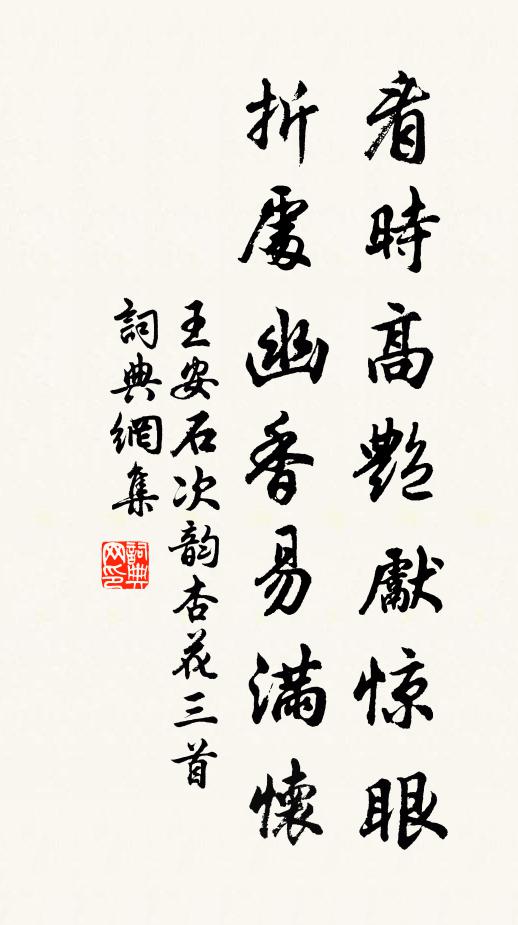 看時高艷獻惊眼
折處幽香易滿懷
王安石次韵杏花三首
詞典網集
詞典网印